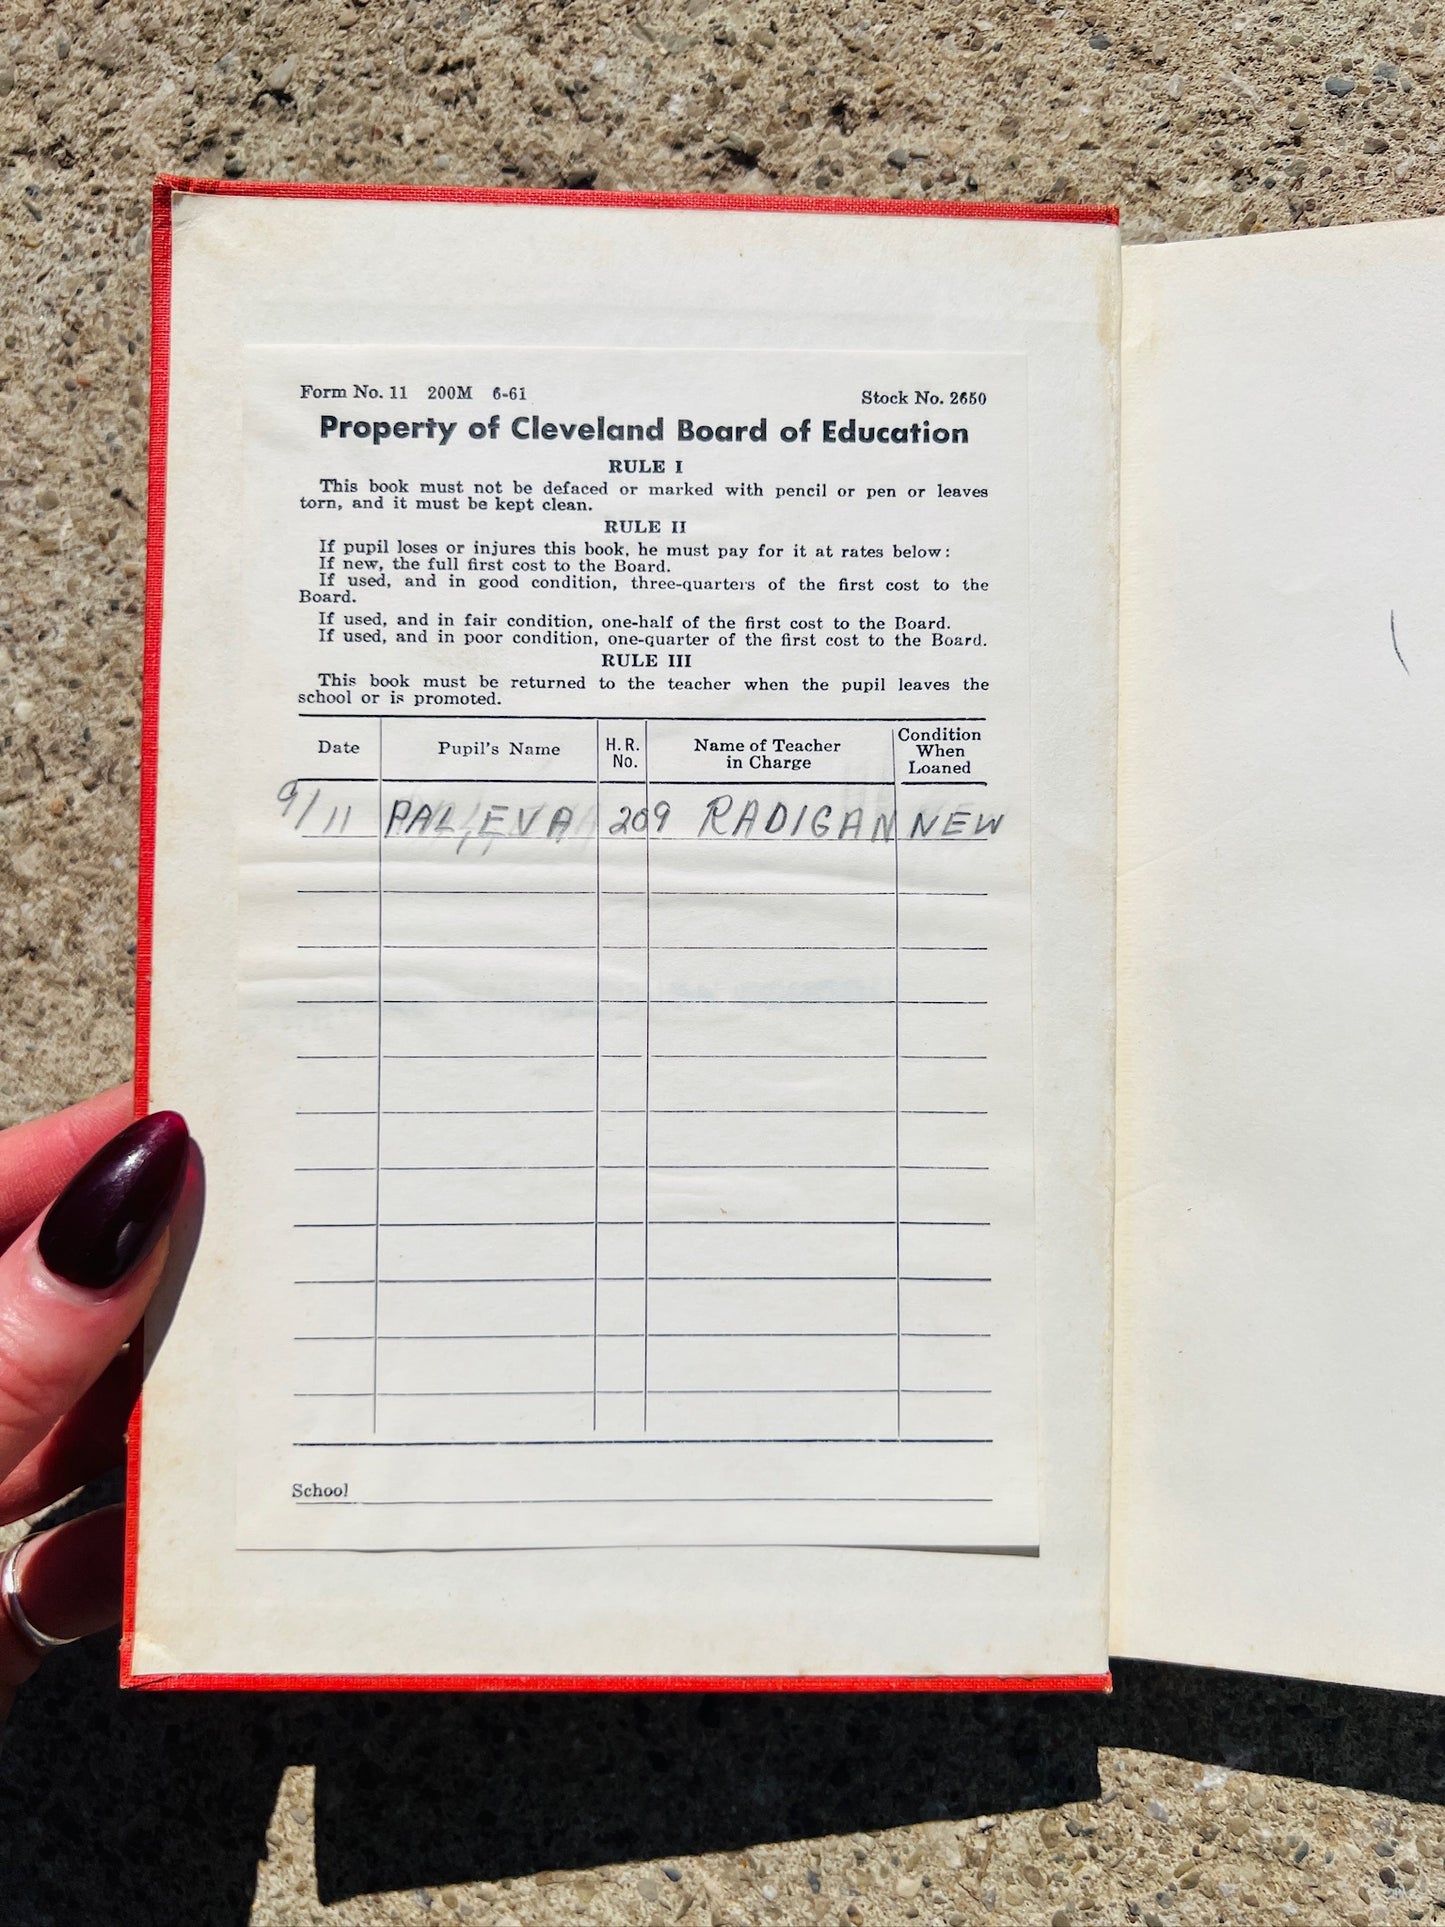 Form No. 11 200M 6-61 Stock No. 2650
Property of Cleveland Board of Education
RULE I
This book must not be defaced or marked with pencil or pen or leaves
torn, and it must be kept clean.
RULE II
If pupil loses or injures this book, he must pay for it at rates below:
If new, the full first cost to the Board.
If used, and in good condition, three-quarters of the first cost to the
Board.
If used, and in fair condition, one-half of the first cost to the Board.
If used, and in poor condition, one-quarter of the first cost to the Board.
RULE III
This book must be returned to the teacher when the pupil leaves the
school or is promoted.
Date Pupil's Name H. R. No. Name of Teacher in Charge Condition When Loaned
9/11 PAL, EVA 209 RADIGAN NEW
School